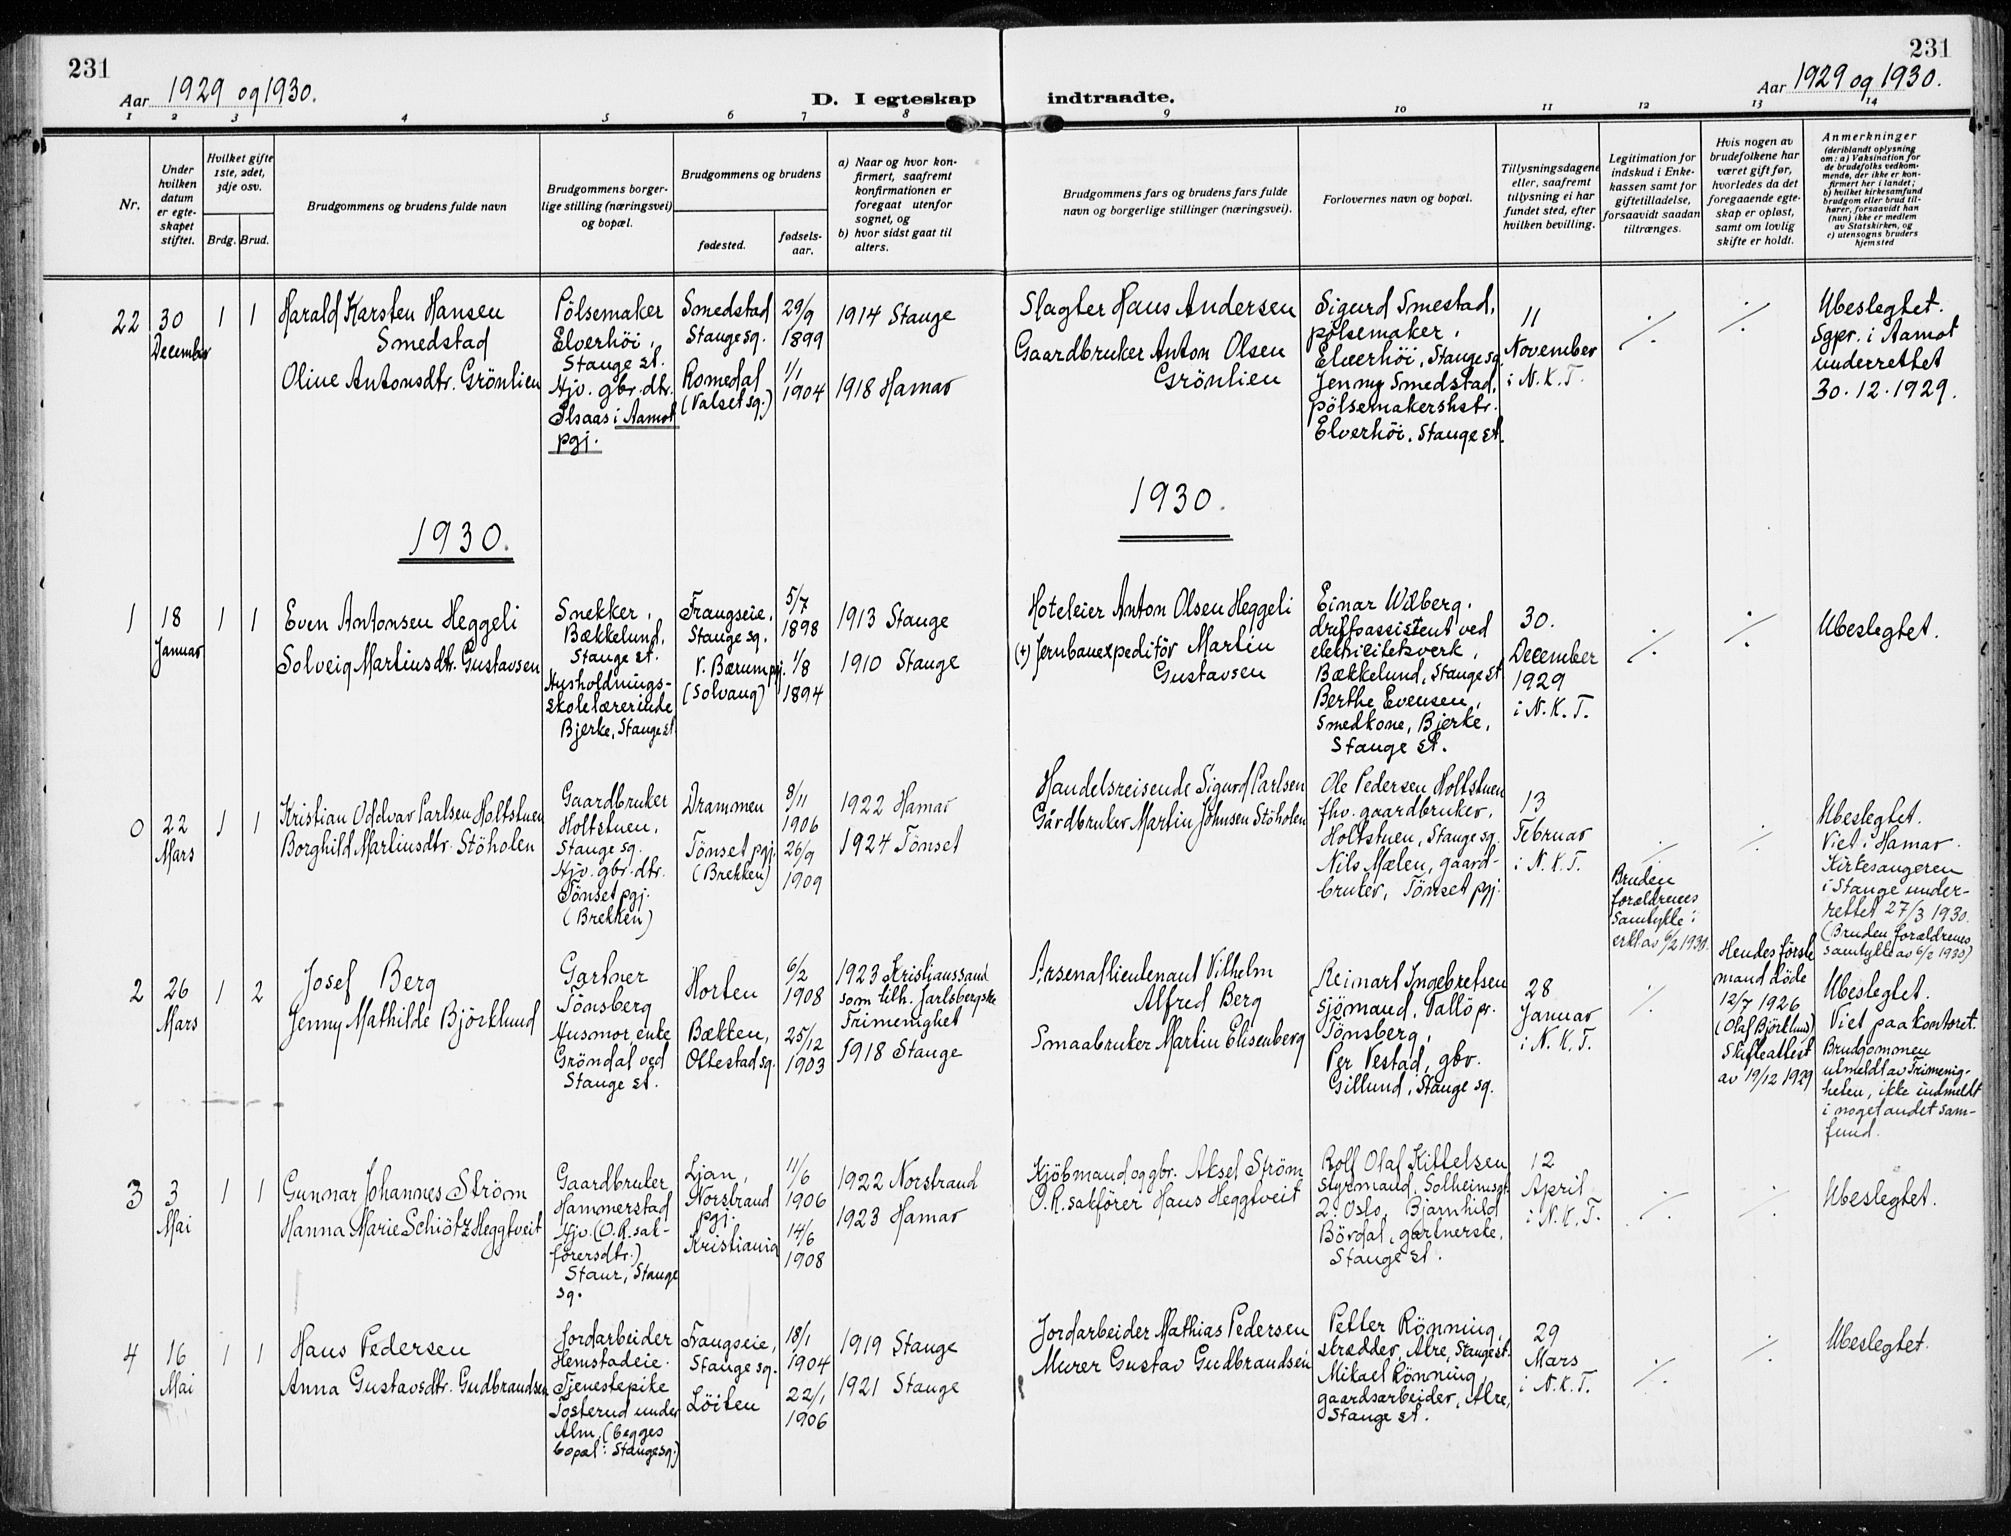 231
Aar 1929 og 1930.
D. I egteskap indtraadte.
231
Aar 1929 og 1930.
1 2 3 4 5 6 7 8 9 10 11 12 13 14
Nr.
Under hvilken datum er egteskapet stiftet.
Hvilket gifte 1ste, 2det, 3dje osv.
Brdg. Brud.
Brudgommens og brudens fulde navn
Brudgommens borgerlige stilling (næringsvei) og bopæl.
Brudgommens og brudens
fødested.
fødselsaar.
a) Naar og hvor konfirmert, saafremt konfirmationen er foregaat utenfor sognet, og
b) hvor sidst gaat til alters.
Brudgommens fars og brudens fars fulde navn og borgerlige stillinger (næringsvei).
Forlovernes navn og bopæl.
Tillysningsdagene eller, saafremt tillysning ei har fundet sted, efter hvilken bevilling.
Legitimation for indskud i Enkekassen samt for giftetilladelse, forsaavidt saadan tiltrænges.
Hvis nogen av brudefolkene har været gift før, hvorledes da det foregaaende egteskap er opløst, samt om lovlig skifte er holdt.
Anmerkninger
(deriblandt oplysning om: a) Vaksination for de brudefolks vedkommende, der ikke er konfirmert her i landet;
b) hvilket kirkesamfund brudgom eller brud tilhører, forsaavidt han (hun) ikke er medlem av Statskirken, og
c) utensogns bruders hjemsted
22
30
December
1 1
Harald Karsten Hansen
Smedstad
Oline Antonsdtr. Grönlien
Pölsemaker
Elverhöi,
Stange st.
Hjv. gbr. dtr.
Ilsaas i Aamot
pgj.
Smedstad
Stange sg.
Romedal
(Valset sg.)
29/9
1899
1/1
1904
1914 Stange
1918 Hamar
Slagter Hans Andersen
Gaardbruker Anton Olsen
Grönlien
Sigurd Smestad,
pölsemaker,
Elverhöi, Stange sg.
Jenny Smedstad,
pölsemakershstr.
Elverhöi, Stange st.
11
November
i N. K. T.
./.
./.
Ubeslegtet.
Sgpr. i Aamot
underrettet
30.12.1929.
1930.
1930.
1
18
Januar
1 1
Even Antonsen Heggeli
Solveig Martinsdtr. Gustavsen
Snekker,
Bækkelund,
Stange st.
Husholdnings-
skolelærerinde
Bjerke, Stange st.
Frangseie,
Stange sg.
V. Bærum pgj.
(Solvang)
5/7
1898
1/8
1894
1913 Stange
1910 Stange
Hoteleier Anton Olsen Heggeli
(+) Jernbaneexpeditör Martin
Gustavsen
Einar Wiberg,
driftsassistent ved
elektricitetsverk,
Bækkelund, Stange st.
Berthe Evensen,
smedkone, Bjerke,
Stange st.
30.
December
1929
i N. K. T.
./.
./.
Ubeslegtet.
0
22
Mars
1 1
Kristian Oddvar Carlsen Holtstuen
Borghild Martinsdtr. Stöholen
Gaardbruker
Holtstuen,
Stange sg.
Hjv. gbr. dtr.
Tönset pgj.
(Brekken)
Drammen
Tönset pgj.
(Brekken)
8/11
1906
26/9
1909
1922 Hamar
1924 Tönset
Handelsreisende Sigurd Carlsen
Gårdbruker Martin Johnsen Stöholen
Ole Pedersen Holtstuen
fhv. gaardbruker,
Holtstuen, Stange sg.
Nils Mælen, gaard-
bruker, Tönset pgj.
13
Februar
i N. K. T.
./.
Bruden
forældrenes
samtykke i
erkl. av 6/2 1930.
./.
Ubeslegtet.
Viet i Hamar.
Kirkesangeren
i Stange under-
rettet 27/3 1930.
(Bruden forældrenes
samtykke av 6/2 1930)
2
26
Mars
1 2
Josef Berg
Jenny Mathilde Björklund
Gartner
Tönsberg
Husmor, enke
Gröndal ved
Stange st.
Horten
Bækken,
Ottestad sg.
6/2
1908
25/12
1903
1923 Kristianssand
som tilh. Jarlsbergske
Frimenighet
1918 Stange
Arsenalløitenant Vilhelm
Alfred Berg
Smaabruker Martin Elisenberg
Reinart Ingebretsen
sjömand, Vallö pr.
Tönsberg,
Per Vestad, gbr.
Gillund, Stange sg.
28
Januar
i N. K. T.
./.
Hendes förste
mand döde
12/7 1926
(Olaf Björklund)
Skifteattest
av 19/12 1929
Ubeslegtet.
Viet paa kontoret.
Brudgommen
utmeldt av Frimenig-
heten, ikke indmeldt
i noget andet sam-
fund.
3
3
Mai
1 1
Gunnar Johannes Ström
Hanna Marie Schiötz Heggtveit
Gaardbruker
Hammerstad
Hjv. (O.R. sak-
förersdtr.)
Staur, Stange
sg.
Ljan,
Norstrand
pgj.
Kristiania
11/6
1906
14/6
1908
1922 Norstrand
1923 Hamar
Kjöbmand og gbr. Aksel Ström
O. R. sakförer Hans Heggtveit
Rolf Olaf Kittelsen
styrmand, Solheimsgt.
2, Oslo, Bjarnhild
Bördal, gartnerske,
Stange st.
12
April
i N. K. T.
./.
./.
Ubeslegtet.
4
16
Mai
1 1
Hans Pedersen
Anna Gustavsdtr. Gudbrandsen
Jordarbeider
Hemstadeie.
Tjenestepike
Tosterud under
Alm. (begges
bopæl: Stange sg.)
Frangseie,
Stange sg.
Löiten
18/1
1904
22/1
1906
1919 Stange
1921 Stange
Jordarbeider Mathias Pedersen
Murer Gustav Gudbrandsen
Petter Rönning,
skrædder, Atre, Stange st.
Mikael Rönning,
gaardsarbeider, Atre,
Stange st.
29
Mars
i N. K. T.
./.
./.
Ubeslegtet.